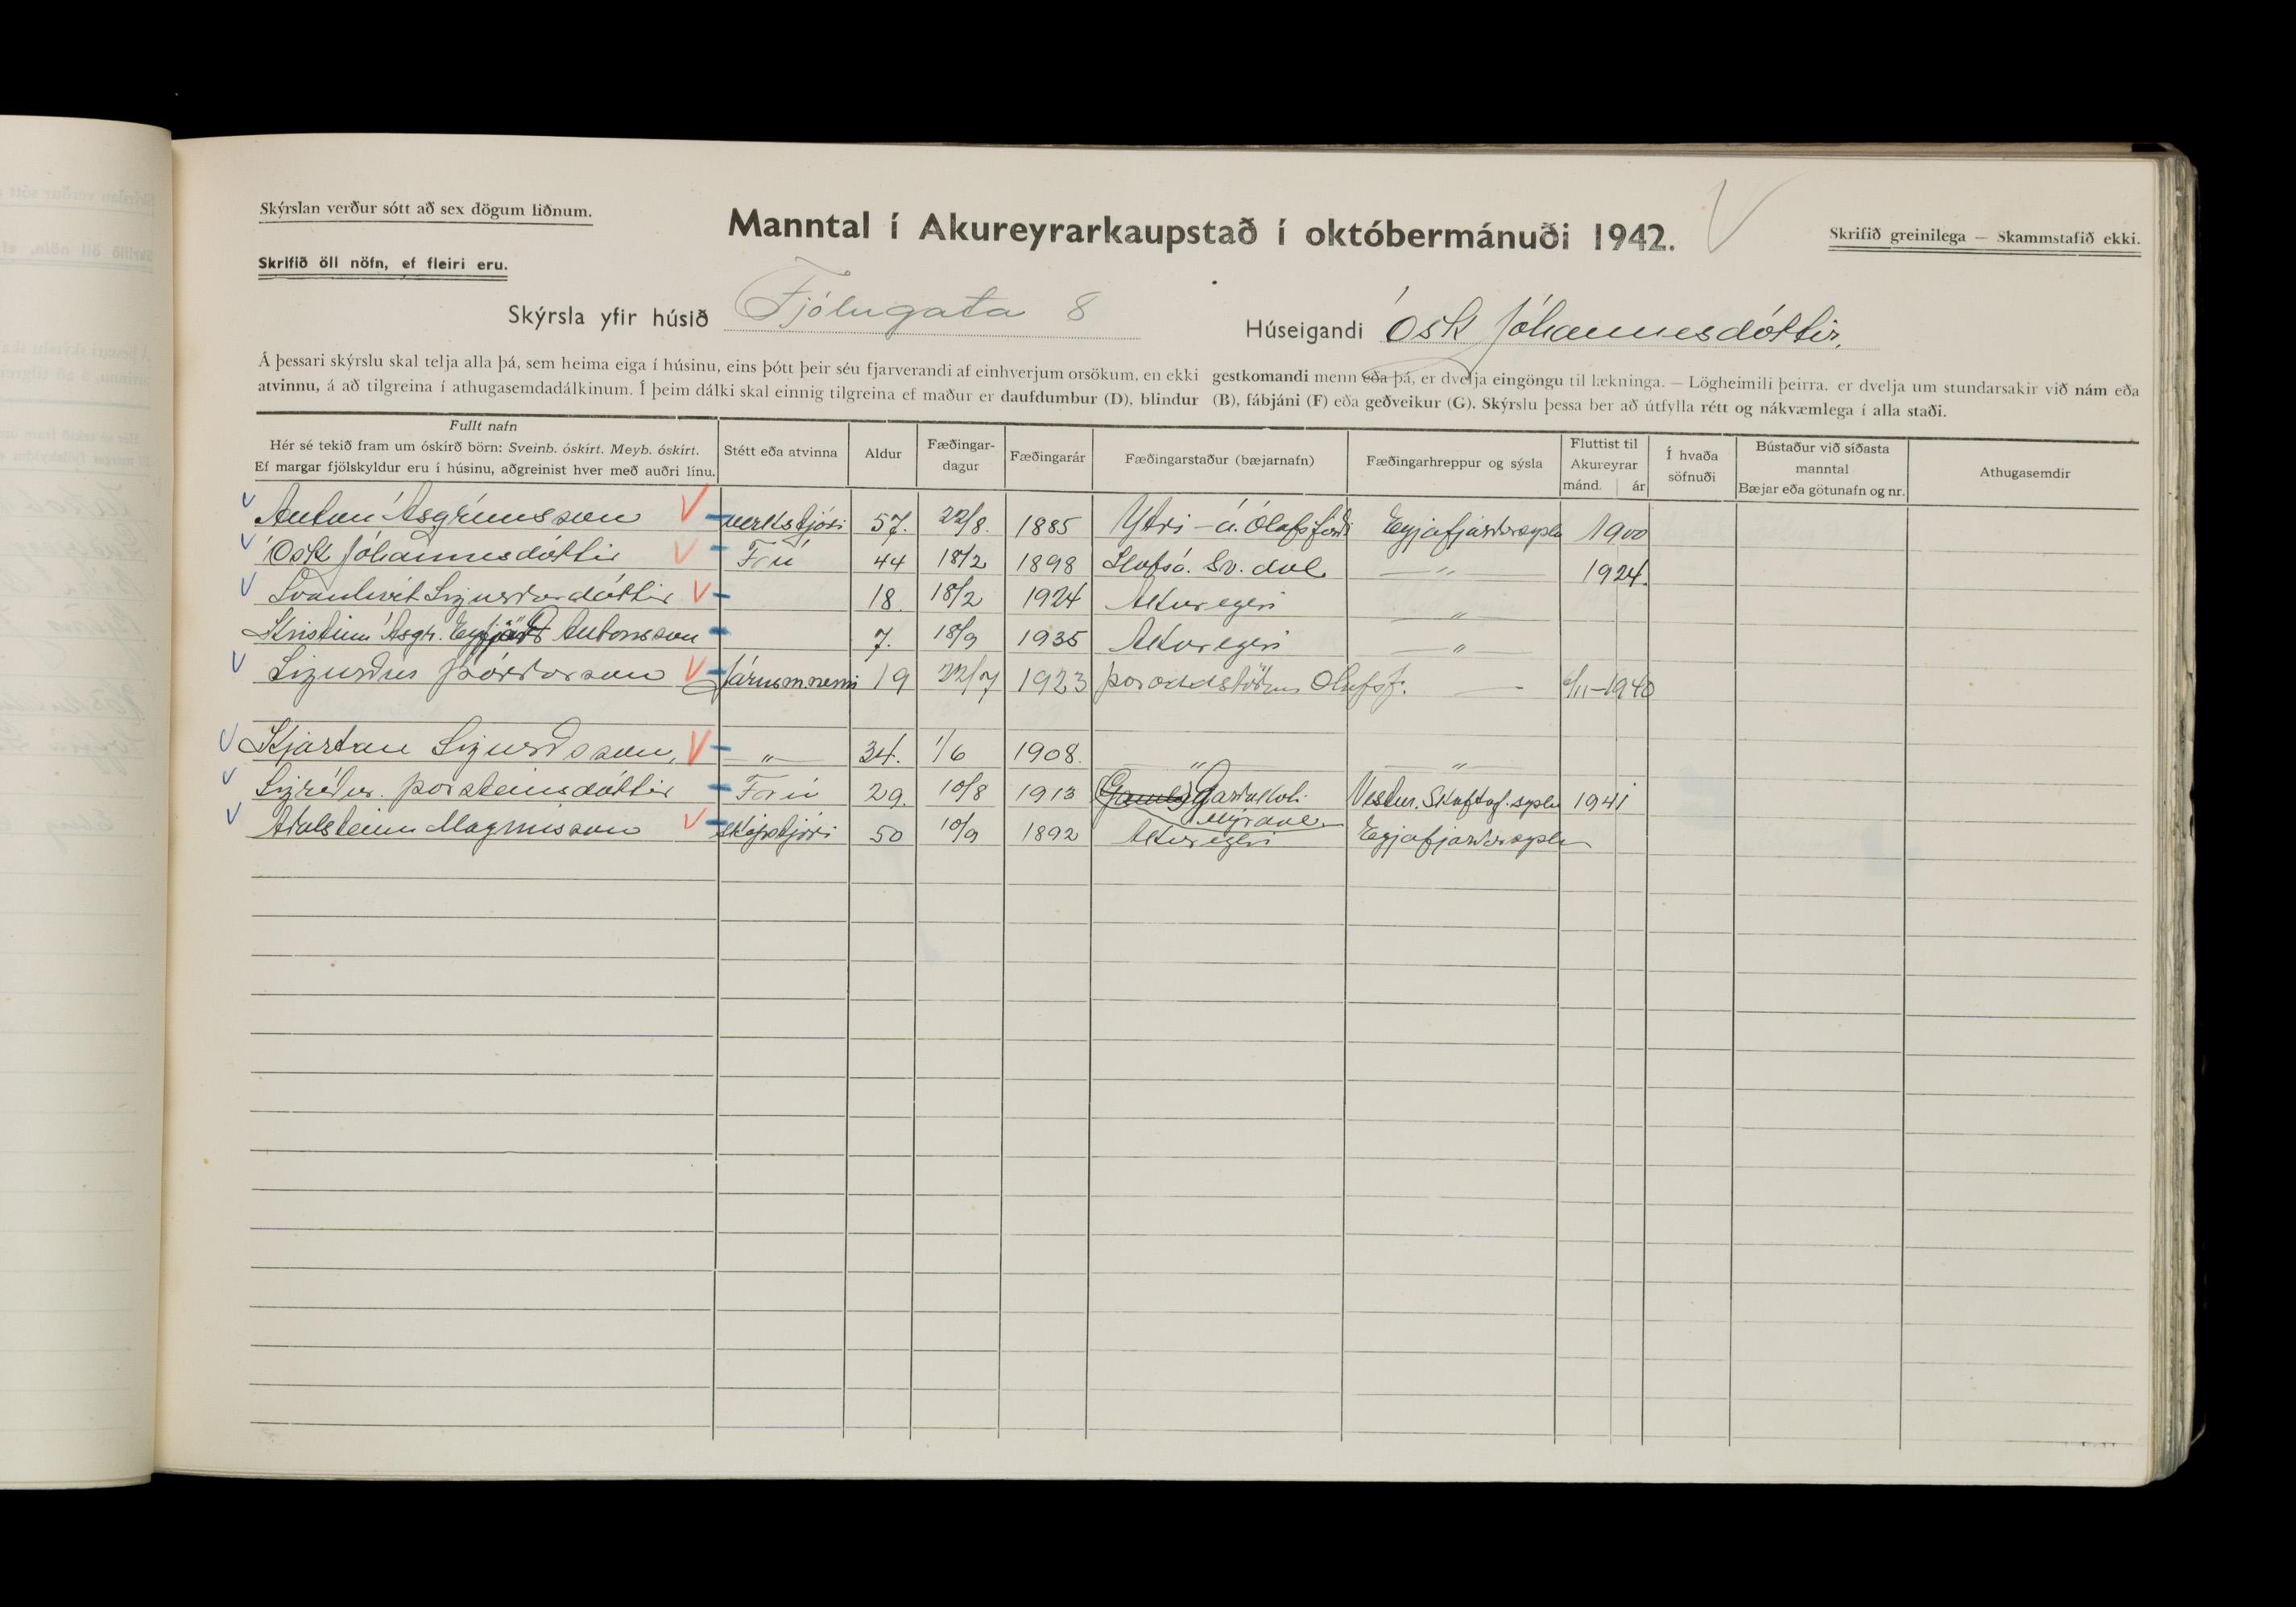 Skýrslan verður sótt að sex dögum liðnum.
Skrifið öll nöfn, ef fleiri eru.
Manntal í Akureyrarkaupstað í októbermánuði 1942.
Skrifið greinilega — Skammstafið ekki.
Skýrsla yfir húsið Fjólugata 8
Húseigandi Ósk Jóhannesdóttir.
Á þessari skýrslu skal telja alla þá, sem heima eiga í húsinu, eins þótt þeir séu fjarverandi af einhverjum orsökum, en ekki gestkomandi menn eða þá, er dvelja eingöngu til lækninga. — Lögheimili þeirra, er dvelja um stundarsakir við nám eða
atvinnu, á að tilgreina í athugasemdadálkinum. Í þeim dálki skal einnig tilgreina ef maður er daufdumbur (D), blindur (B), fábjáni (F) eða geðveikur (G). Skýrslu þessa ber að útfylla rétt og nákvæmlega í alla staði.
Fullt nafn
Hér sé tekið fram um óskírð börn: Sveinb. óskírt. Meyb. óskírt.
Ef margar fjölskyldur eru í húsinu, aðgreinist hver með auðri línu.
Stétt eða atvinna
Aldur
Fæðingar-
dagur
Fæðingarár
Fæðingarstaður (bæjarnafn)
Fæðingarhreppur og sýsla
Fluttist til
Akureyrar
mánd. ár
Í hvaða
söfnuði
Bústaður við síðasta
manntal
Bæjar eða götunafn og nr.
Athugasemdir
Anton Ásgrímsson verkstjóri 57. 22/8. 1885 Ytri-á. Ólafsfirði Eyjafjarðarsýslu 1900
Ósk Jóhannesdóttir Frú 44 18/2 1898 Sv. dal — " — 1924.
Svanhvít Sigurðardóttir 18 18/2 1924 Akureyri — " —
Kristinn Ásgr. Eyfjörð Antonsson 7. 18/9 1935 Akureyri — " —
Sigurður Þórðarson Járnsmnemi 19 22/7 1923 Þóroddstöðum Ólafsf. — 6/11-1940
Kjartan Sigurðsson, — " — 34. 1/6 1908. — " — — " —
Sigríður. Þorsteinsdóttir Frú 29. 10/8 1913 Garðakoti Mýrdal Vestur. Skaftaf. sýslu 1941
Aðalsteinn Magnússon skipstjóri 50 10/9 1892 Akureyri Eyjafjarðarsýslu